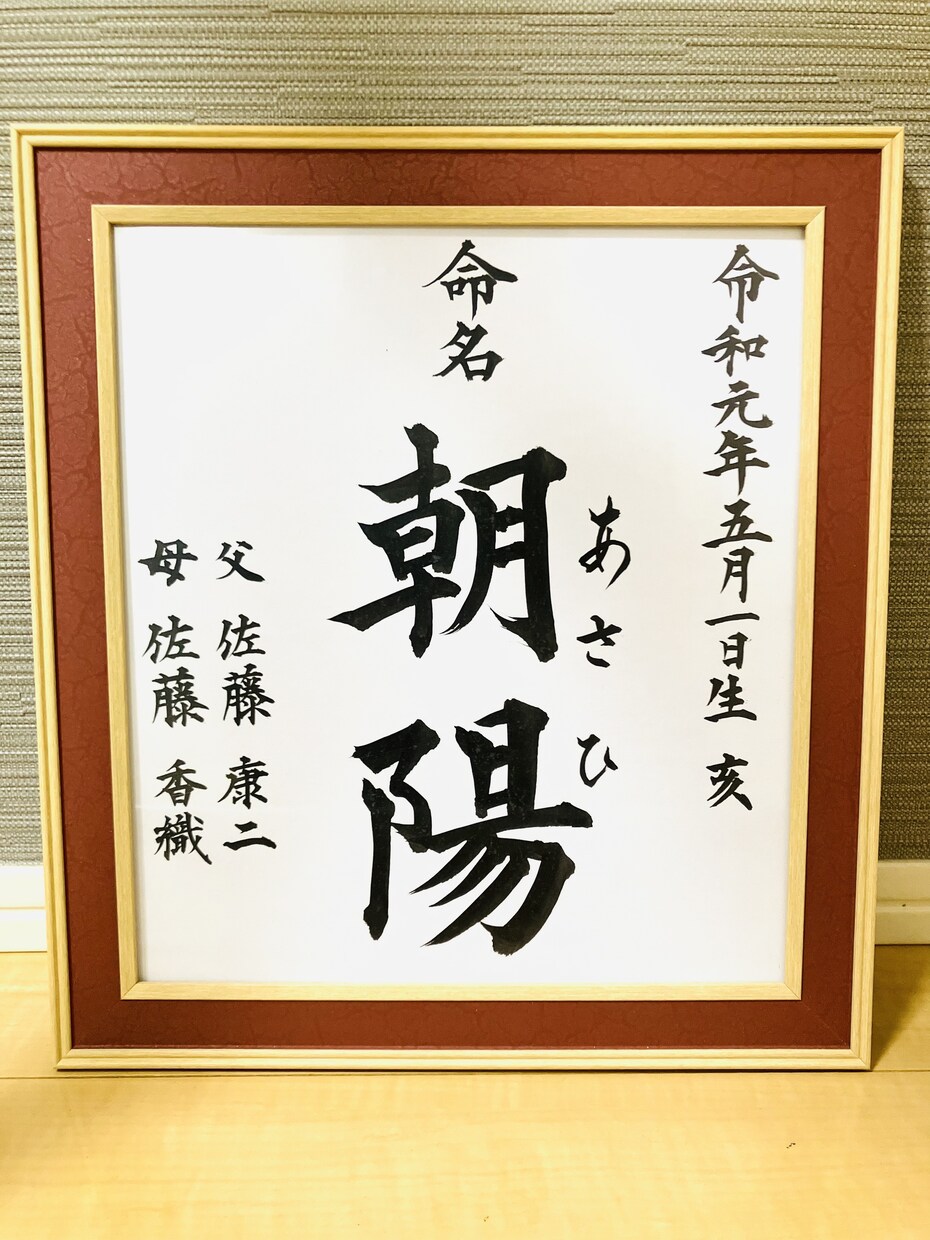 令和元年五月一日生 亥
命名
朝陽
あさひ
父 佐藤 康二
母 佐藤 香織